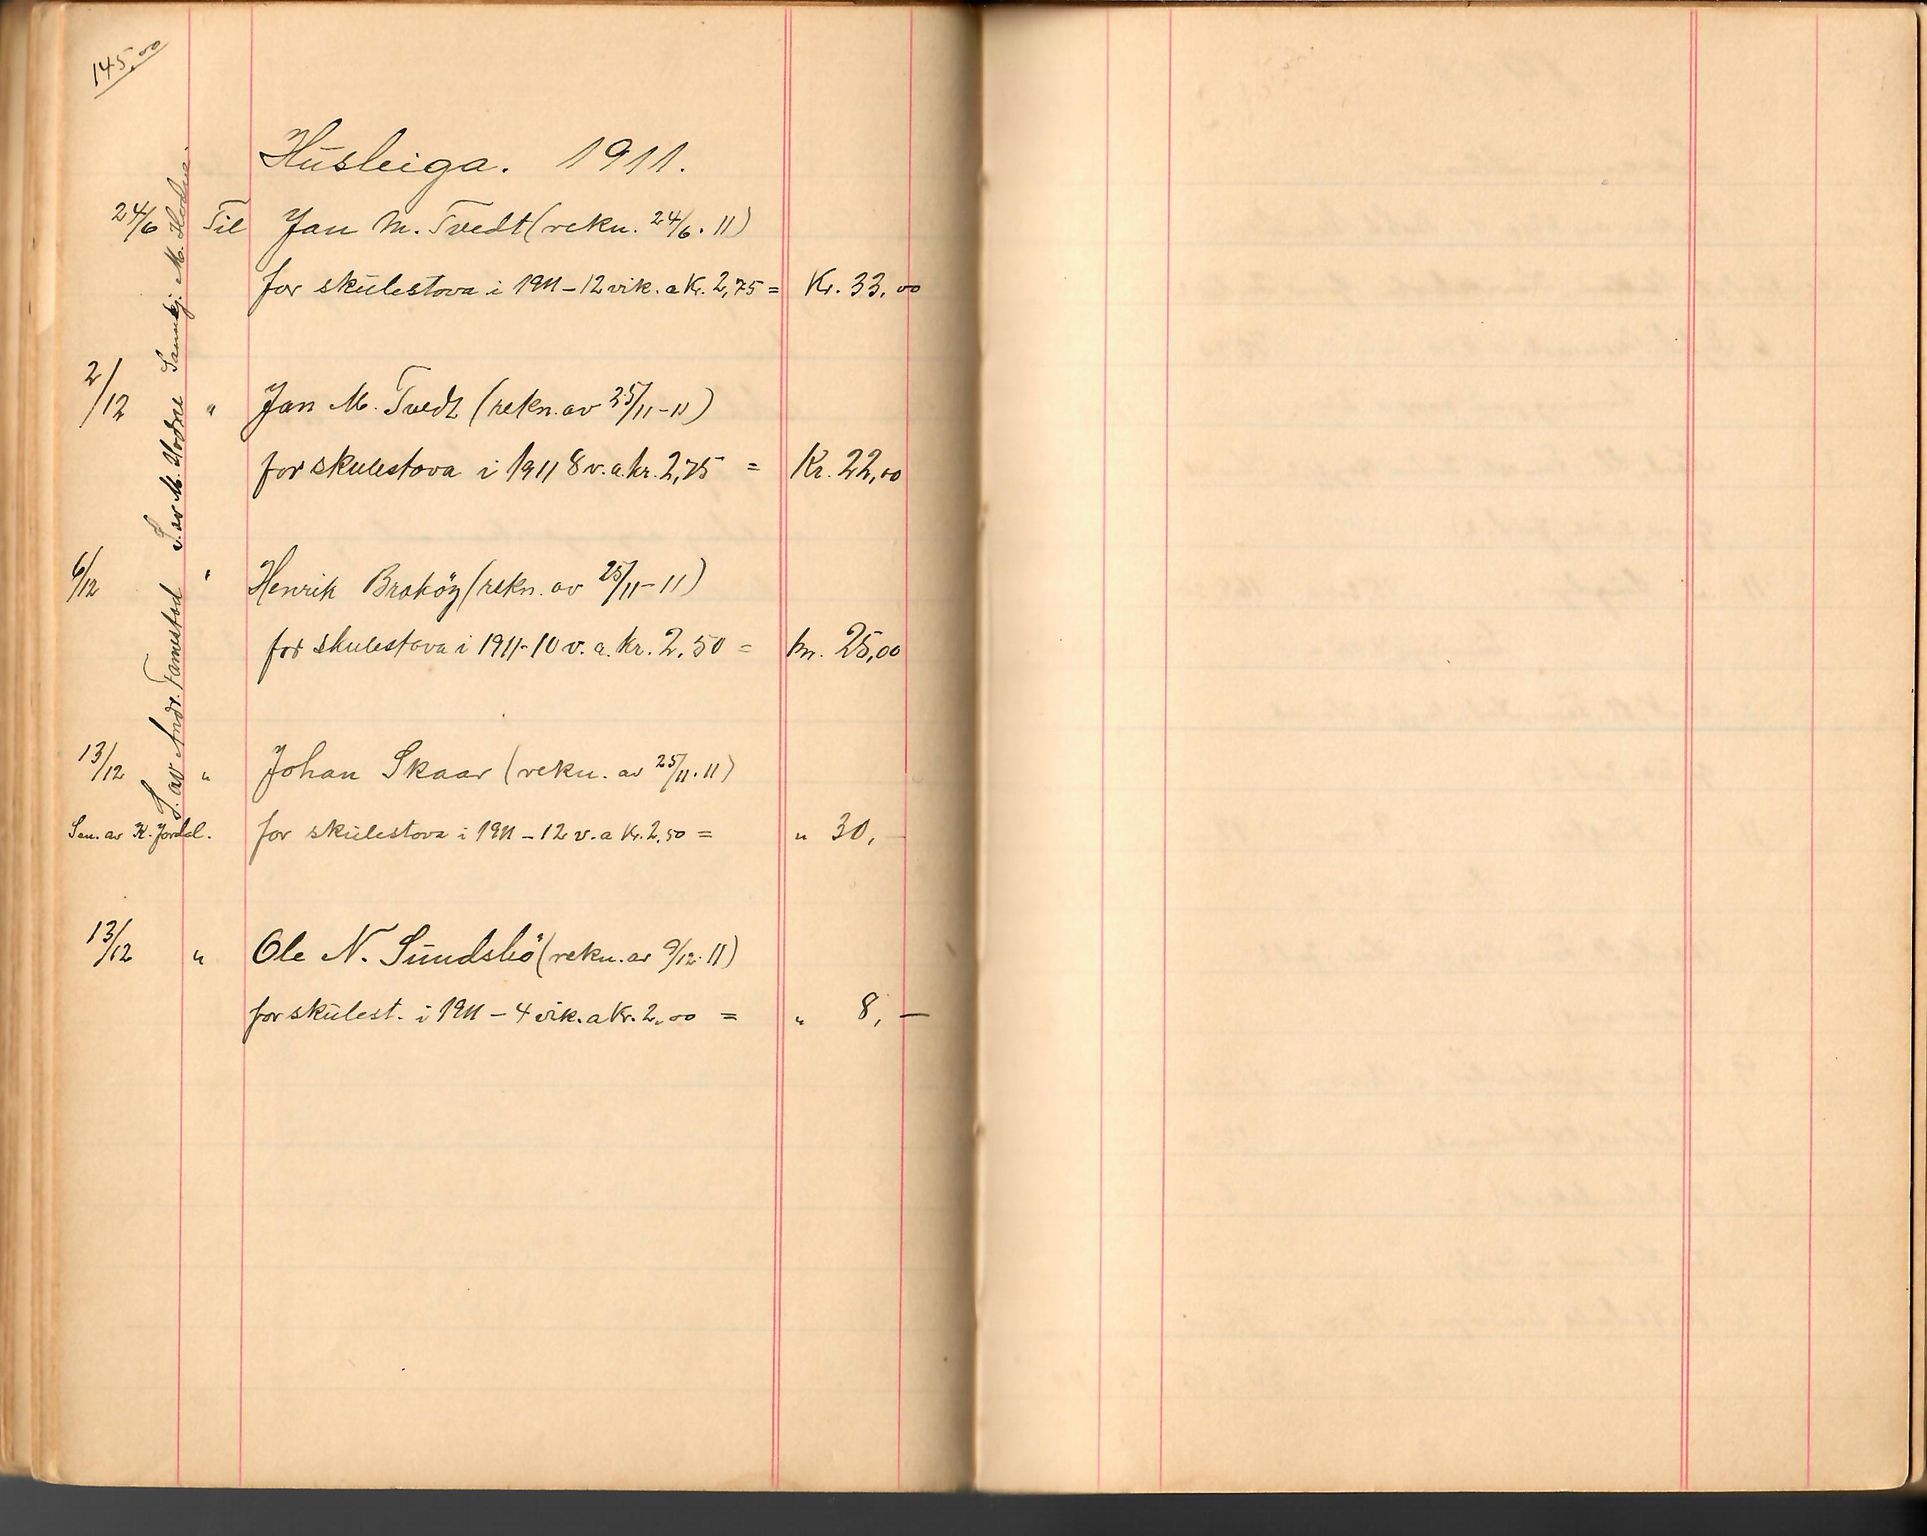 145,00
Husleiga. 1911.
24/6 Til Jan M. Tvedt (rekn. 24/6. 11)
for skulestova i 1911 – 12 vik. a Kr. 2,75 = Kr. 33,00
2/12 " Jan M. Tvedt (rekn. av 25/11–11)
for skulestova i 1911 8 v. a. kr. 2,75 = Kr. 22,00
6/12 " Henrik (rekn. av 25/11–11)
for skulestova i 1911–10 v. a. kr. 2,50 = kr. 25,00
13/12 " Johan Skaar (rekn. av 25/11. 11)
Sen. av K. for skulestova i 1911 – 12 v. a Kr. 2,50 = " 30,–
13/12 " Ole N. Sundsbö (rekn. av 9/12. 11)
for skulest. i 1911 – 4 vik. a Kr. 2,00 = " 8,–
S. av Andr. Tamestod S. av M. Hodne M. Hodne.